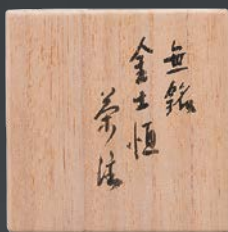 無銘
金士恒
茶注